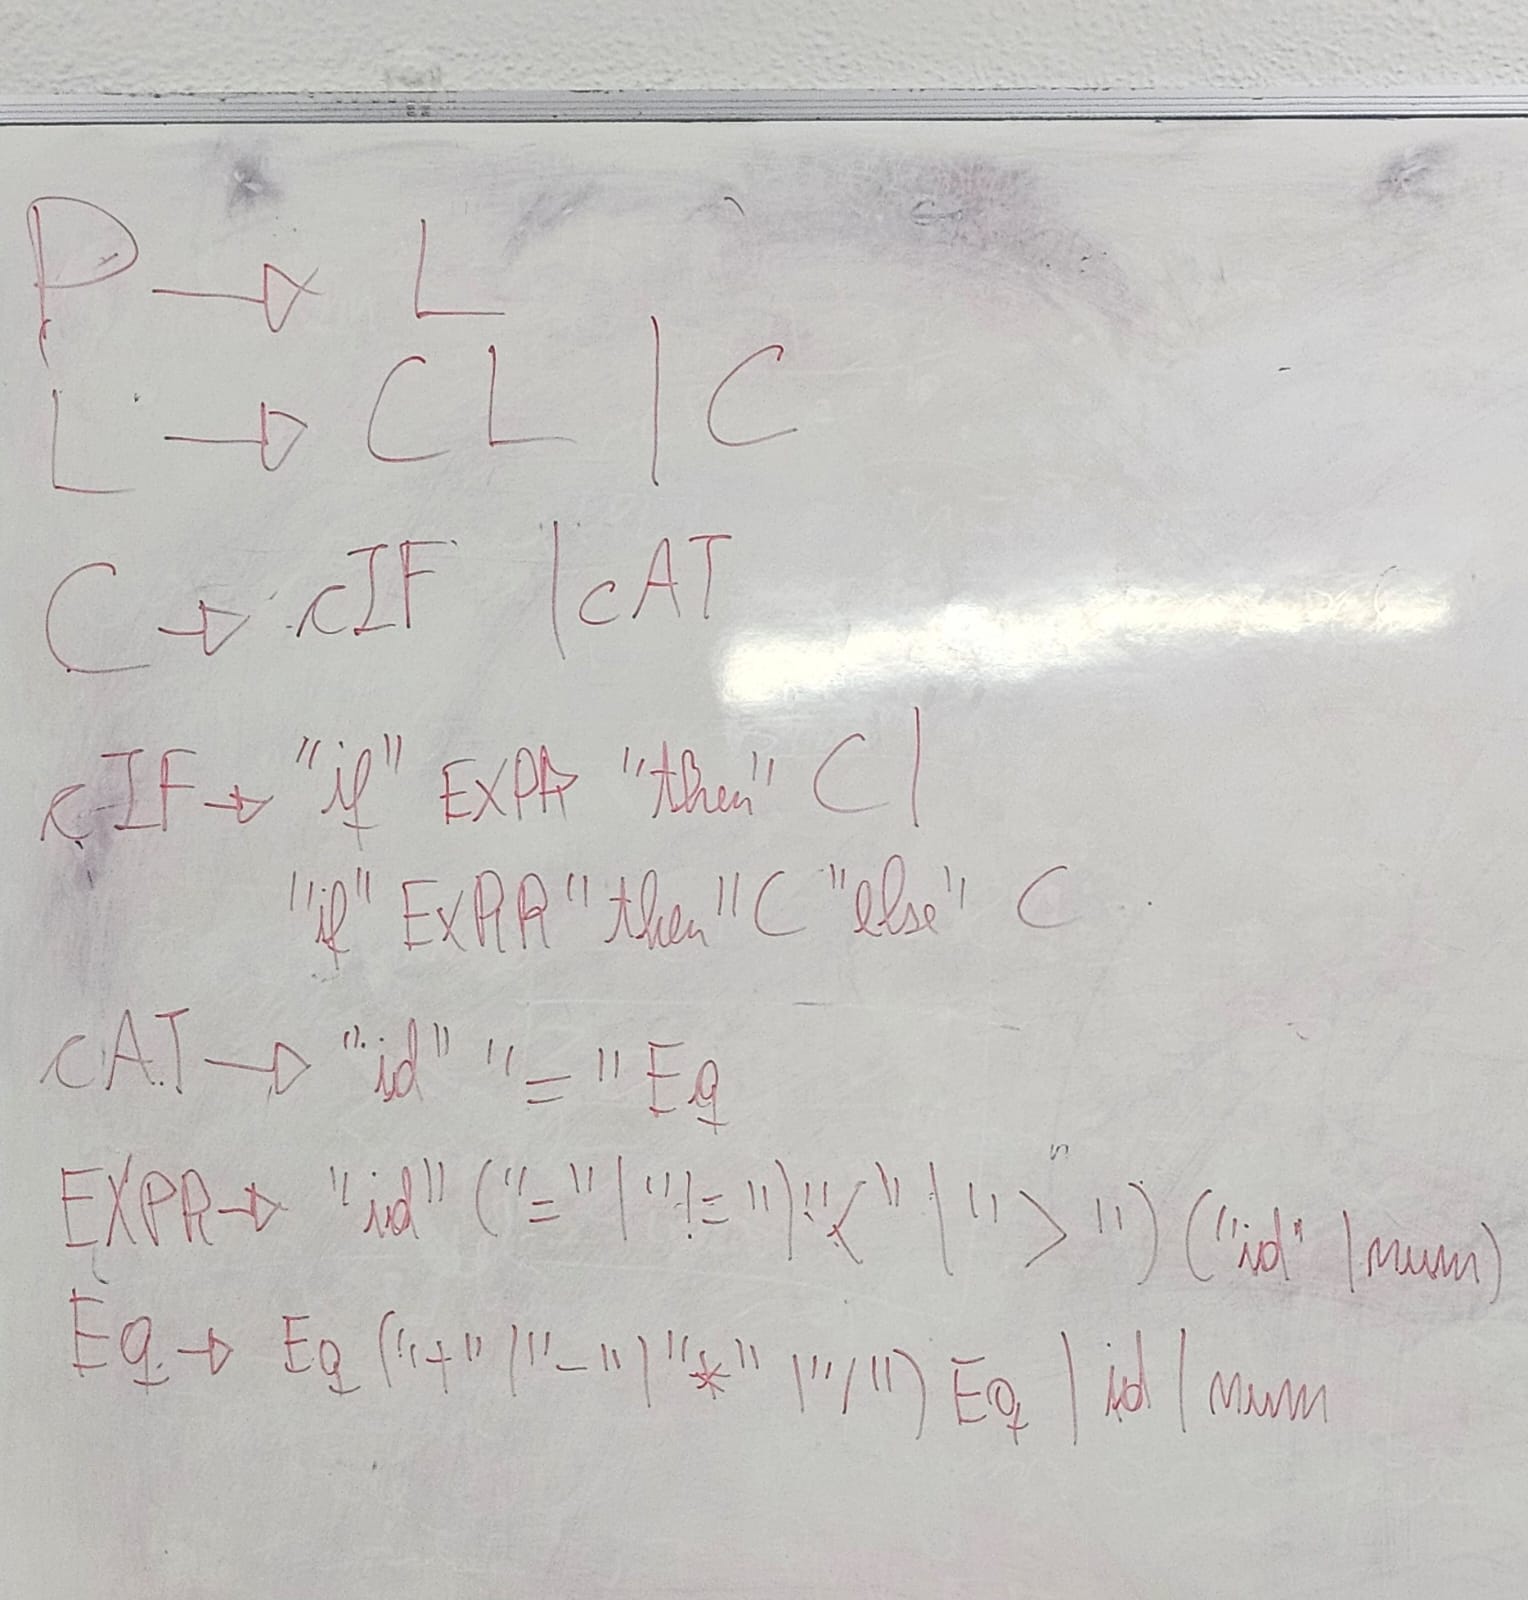 P → L
L → CL | C
C → cIF | cAT
cIF → "if" EXPR "then" C |
"if" EXPR "then" C "else" C
cAT → "id" "=" Eq
EXPR → "id" ("=" | "!=" | "<" | ">") ("id" | num)
Eq → Eq ("+" | "-" | "*" | "/") Eq | id | num